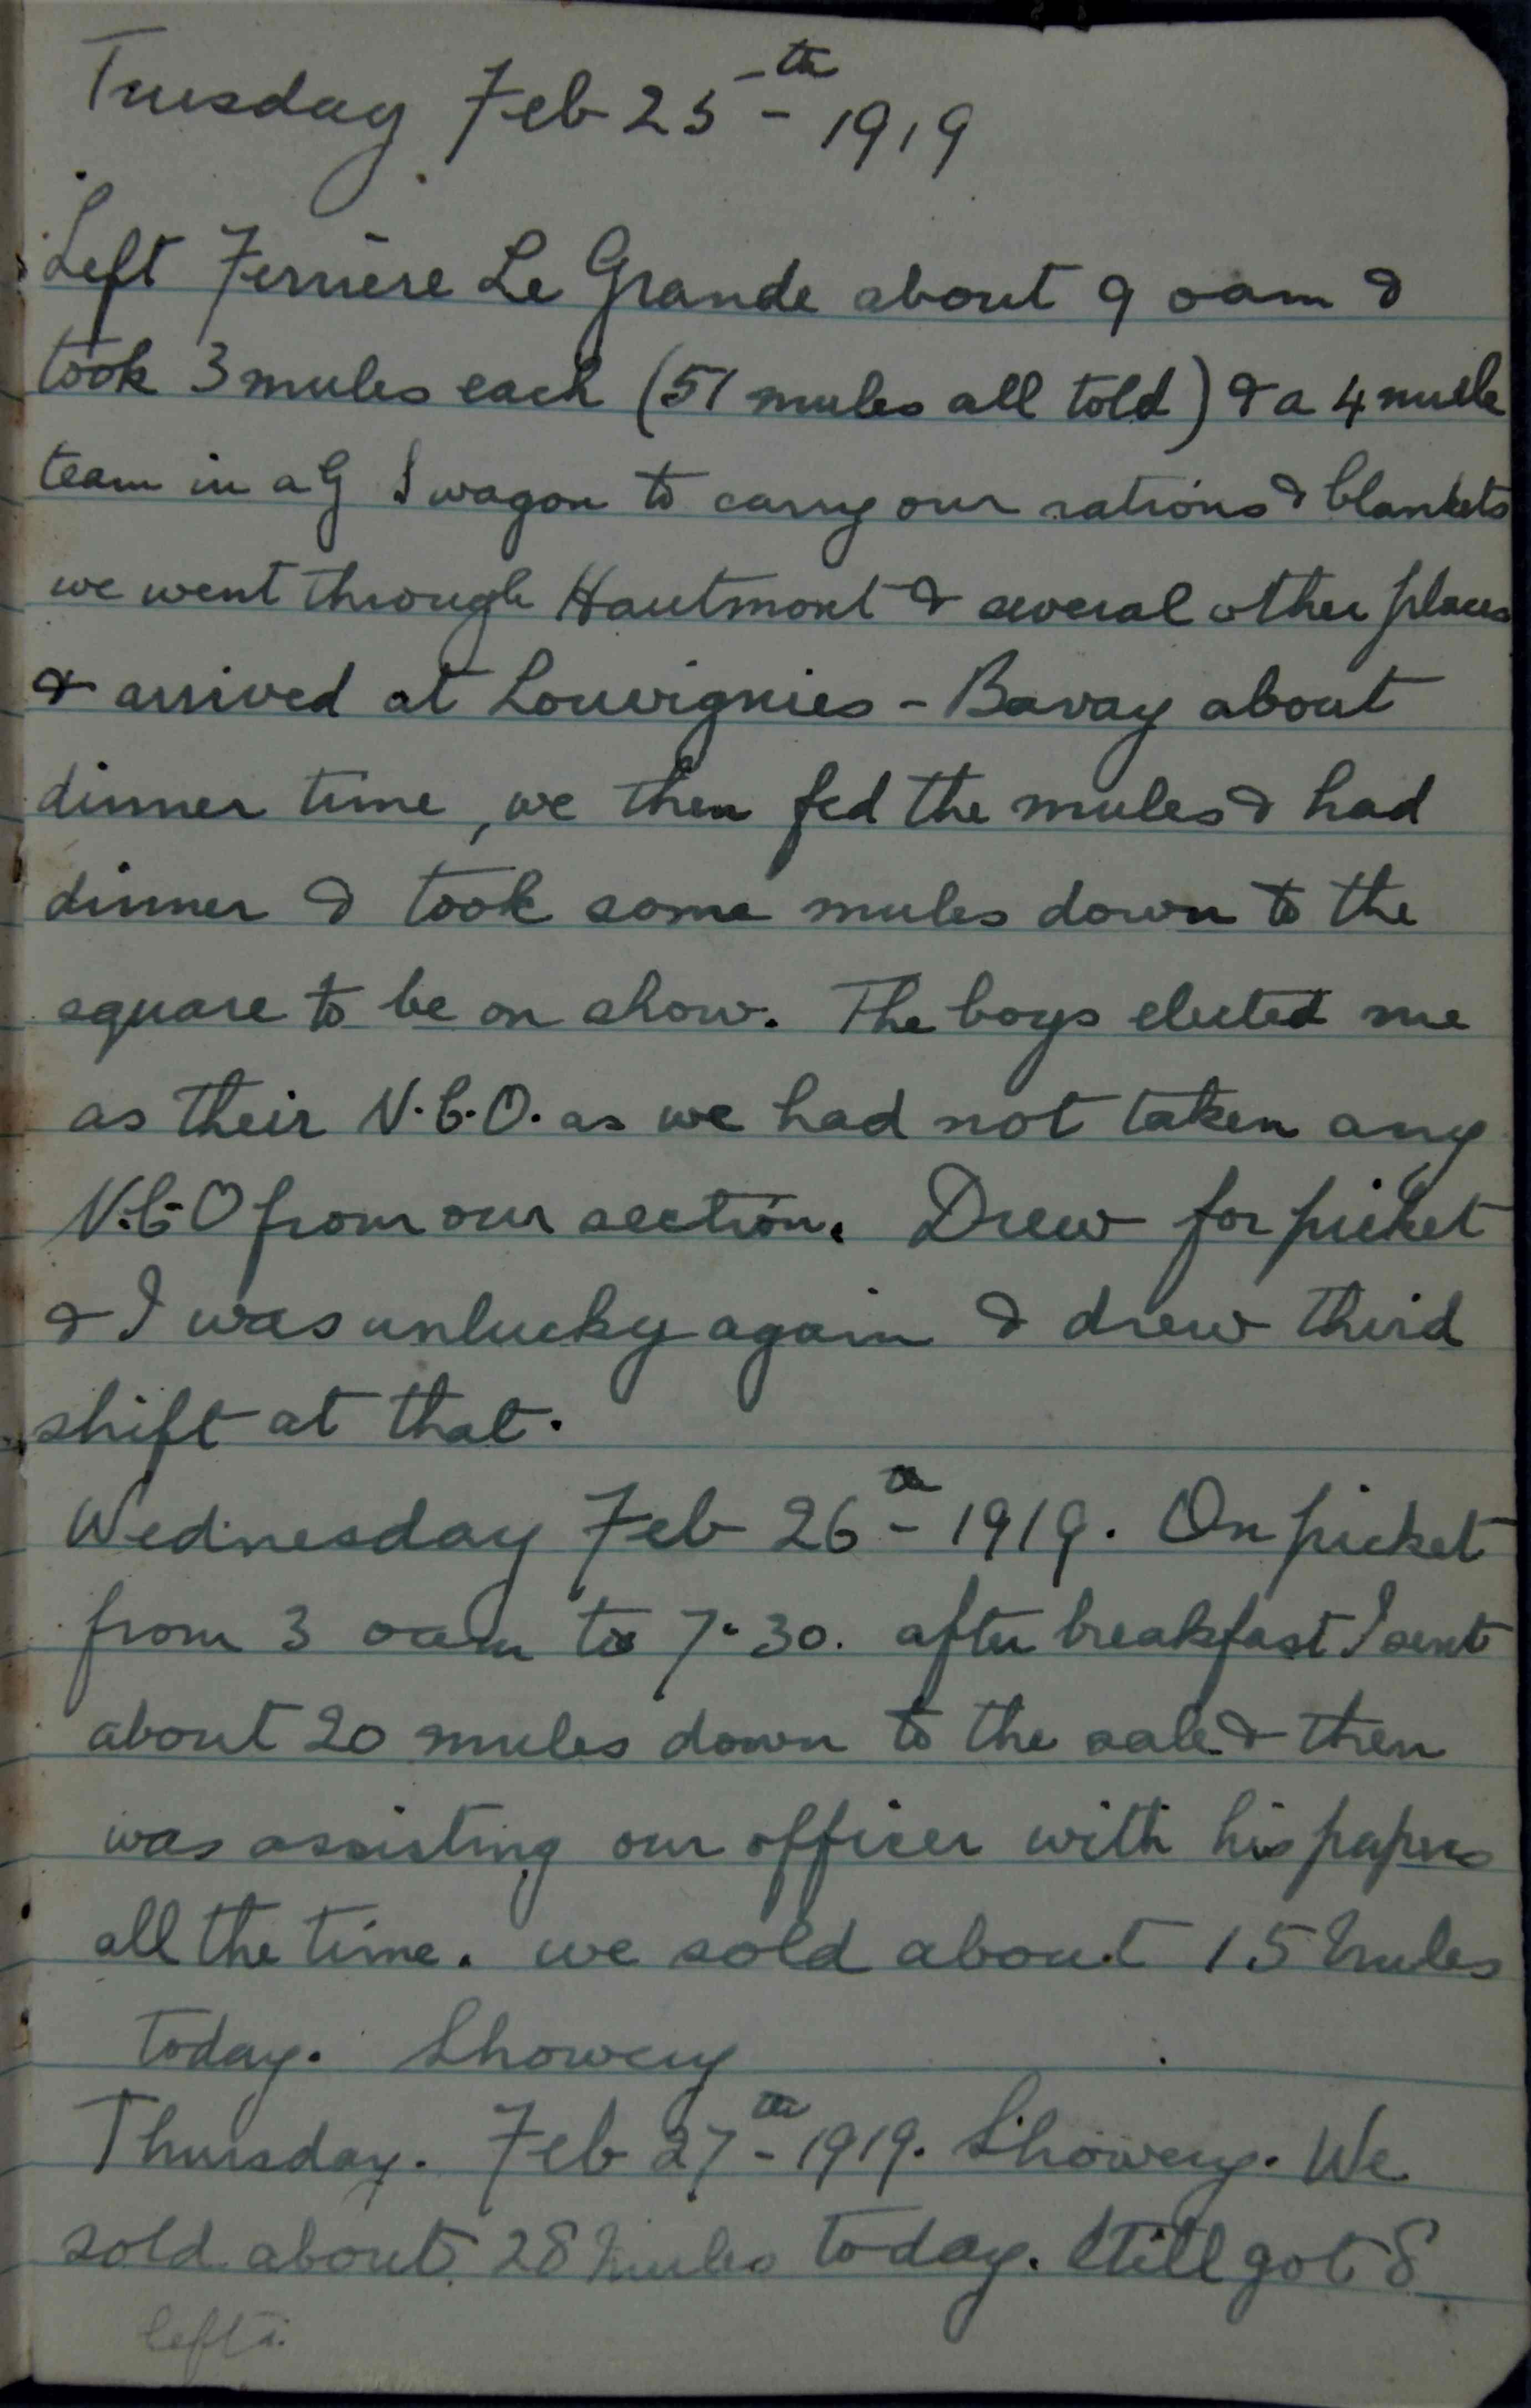 Tuesday Feb 25th 1919
Left Ferriere Le Grande about 9 oam &
took 3 mules each (51 mules all told) & a 4 mule
team in a G S wagon to carry our rations & blankets
we went through Hautmont & several other places
& arrived at Louvignies - Bavay about
dinner time, we then fed the mules & had
dinner & took some mules down to the
square to be on show. The boys elected me
as their N.C.O. as we had not taken any
N.C.O from our section. Drew for picket
& I was unlucky again & drew third
shift at that.
Wednesday Feb 26th 1919. On picket
from 3 oam to 7.30. after breakfast I sent
about 20 mules down to the sale & then
was assisting our officer with his papers
all the time. we sold about 15 mules
today. Showery
Thursday. Feb 27th 1919. Showery. We
sold about 28 mules today. Still got 8
left.